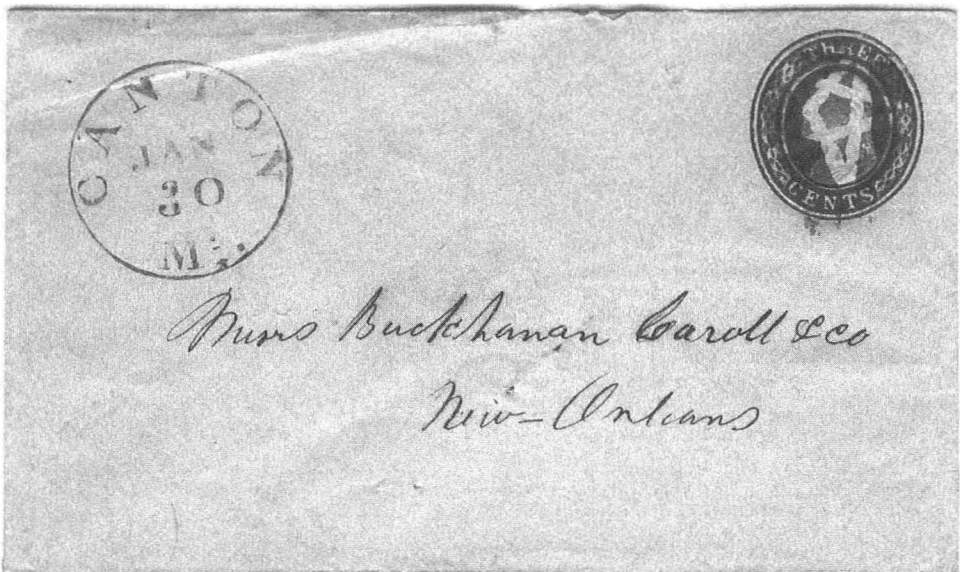 CANTON
JAN
30
Mi.
THREE
CENTS
Messrs Buckhanan Caroll & co
New-Orleans